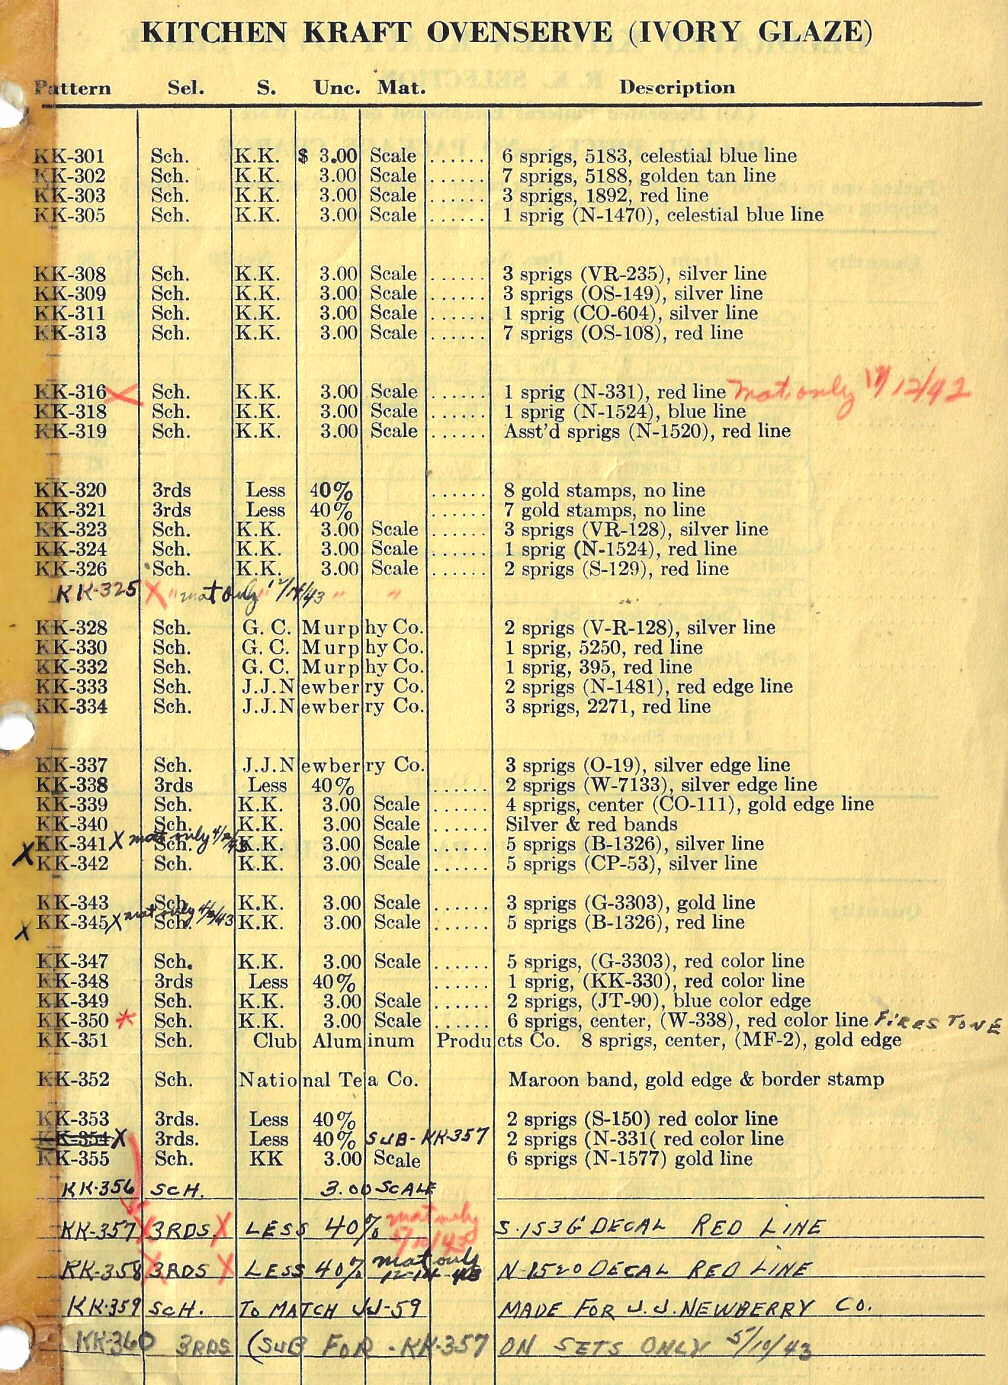 KITCHEN KRAFT OVENSERVE (IVORY GLAZE)
Pattern Sel. S. Unc. Mat. Description
KK-301 Sch. K.K. $ 3.00 Scale ...... 6 sprigs, 5183, celestial blue line
KK-302 Sch. K.K. 3.00 Scale ...... 7 sprigs, 5188, golden tan line
KK-303 Sch. K.K. 3.00 Scale ...... 3 sprigs, 1892, red line
KK-305 Sch. K.K. 3.00 Scale ...... 1 sprig (N-1470), celestial blue line
KK-308 Sch. K.K. 3.00 Scale ...... 3 sprigs (VR-235), silver line
KK-309 Sch. K.K. 3.00 Scale ...... 3 sprigs (OS-149), silver line
KK-311 Sch. K.K. 3.00 Scale ...... 1 sprig (CO-604), silver line
KK-313 Sch. K.K. 3.00 Scale ...... 7 sprigs (OS-108), red line
KK-316 X Sch. K.K. 3.00 Scale ...... 1 sprig (N-331), red line Mat only 12/42
KK-318 Sch. K.K. 3.00 Scale ...... 1 sprig (N-1524), blue line
KK-319 Sch. K.K. 3.00 Scale ...... Asst'd sprigs (N-1520), red line
KK-320 3rds Less 40% ...... 8 gold stamps, no line
KK-321 3rds Less 40% ...... 7 gold stamps, no line
KK-323 Sch. K.K. 3.00 Scale ...... 3 sprigs (VR-128), silver line
KK-324 Sch. K.K. 3.00 Scale ...... 1 sprig (N-1524), red line
KK-326 Sch. K.K. 3.00 Scale ...... 2 sprigs (S-129), red line
KK-325 X " mat only " " "
KK-328 Sch. G. C. Murphy Co. 2 sprigs (V-R-128), silver line
KK-330 Sch. G. C. Murphy Co. 1 sprig, 5250, red line
KK-332 Sch. G. C. Murphy Co. 1 sprig, 395, red line
KK-333 Sch. J.J.Newberry Co. 2 sprigs (N-1481), red edge line
KK-334 Sch. J.J.Newberry Co. 3 sprigs, 2271, red line
KK-337 Sch. J.J.Newberry Co. 3 sprigs (O-19), silver edge line
KK-338 3rds Less 40% ...... 2 sprigs (W-7133), silver edge line
KK-339 Sch. K.K. 3.00 Scale ...... 4 sprigs, center (CO-111), gold edge line
KK-340 Sch. K.K. 3.00 Scale ...... Silver & red bands
X KK-341 X mat only Sch. K.K. 3.00 Scale ...... 5 sprigs (B-1326), silver line
KK-342 Sch. K.K. 3.00 Scale ...... 5 sprigs (CP-53), silver line
KK-343 Sch. K.K. 3.00 Scale ...... 3 sprigs (G-3303), gold line
X KK-345 X mat only Sch. K.K. 3.00 Scale ...... 5 sprigs (B-1326), red line
KK-347 Sch. K.K. 3.00 Scale ...... 5 sprigs, (G-3303), red color line
KK-348 3rds Less 40% ...... 1 sprig, (KK-330), red color line
KK-349 Sch. K.K. 3.00 Scale ...... 2 sprigs, (JT-90), blue color edge
KK-350 * Sch. K.K. 3.00 Scale ...... 6 sprigs, center, (W-338), red color line FIRESTONE
KK-351 Sch. Club Aluminum Products Co. 8 sprigs, center, (MF-2), gold edge
KK-352 Sch. National Tea Co. Maroon band, gold edge & border stamp
KK-353 3rds. Less 40% 2 sprigs (S-150) red color line
KK-354 X 3rds. Less 40% SUB-KK-357 2 sprigs (N-331( red color line
KK-355 Sch. KK 3.00 Scale 6 sprigs (N-1577) gold line
KK-356 SCH. 3.00 SCALE
KK-357 X 3RDS. X LESS 40% mat only 5/10/43 S-1536 DECAL RED LINE
KK-358 X 3RDS X LESS 40% mat only 12-14-43 N-1520 DECAL RED LINE
KK-359 SCH. TO MATCH JJ-59 MADE FOR J.J. NEWBERRY CO.
KK-360 3RDS (SUB FOR - KK-357 ON SETS ONLY 5/10/43